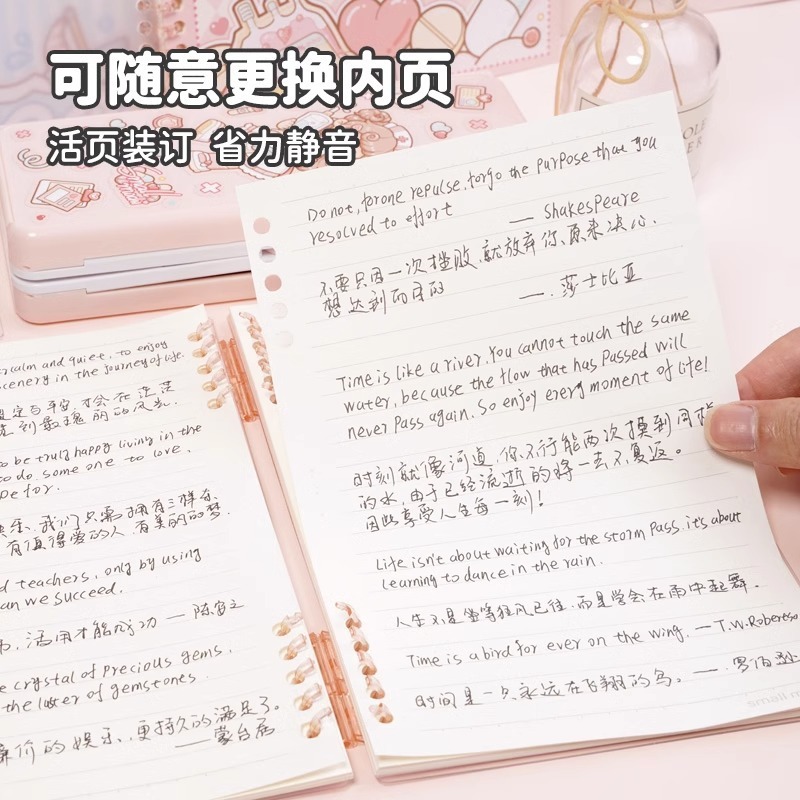 可随意更换内页
活页装订 省力静音
Do not, for one repulse, forgo the purpose that you
resolved to effort — Shakespeare
不要只因一次挫败,就放弃你原来决心
想达到的目的 —.莎士比亚
Time is like a river. You cannot touch the same
water, because the flow that has passed will
never pass again. So enjoy every moment of life!
时刻就像河道,你不行能两次摸到同样
的水,由于已经流逝的将一去不复返。
因此享受人生每一刻!
Life isn't about waiting for the storm pass. it's about
learning to dance in the rain.
人生不是坐等狂风已往,而是学会在雨中起舞。
Time is a bird for ever on the wing. — T.W.Robertso
时间是一只永远在飞翔的鸟。—.罗伯逊
small
calm and quiet, to enjoy
scenery in the journey of life.
宁,才会在
刻最瑰丽的风光.
o be truly happy living in the
to do. some one to love,
pe for.
乐,我们只需拥有三样东
有值得爱的人,有美丽的梦.
d teachers, only by using
an we succeed.
活用才能成功 — 陈
e crystal of precious gems,
the luster of gemstones.
价的娱乐,更持久的满足了。
——蒙台居